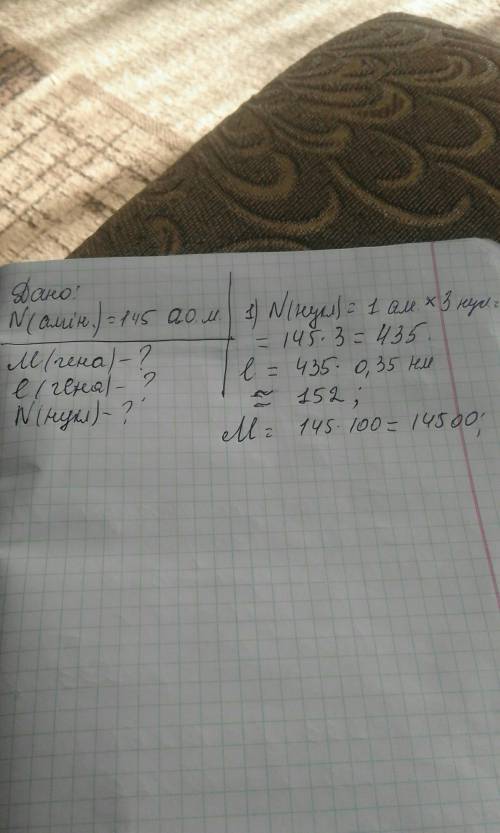 Дано:
N(амін.) = 145 а.о.м.
М(гена) - ?
l(гена) - ?
N(нукл) - ?
1) N(нукл) = 1 ам × 3 нукл =
= 145 · 3 = 435.
l = 435 · 0,35 нм
≈ 152;
М = 145 · 100 = 14500;